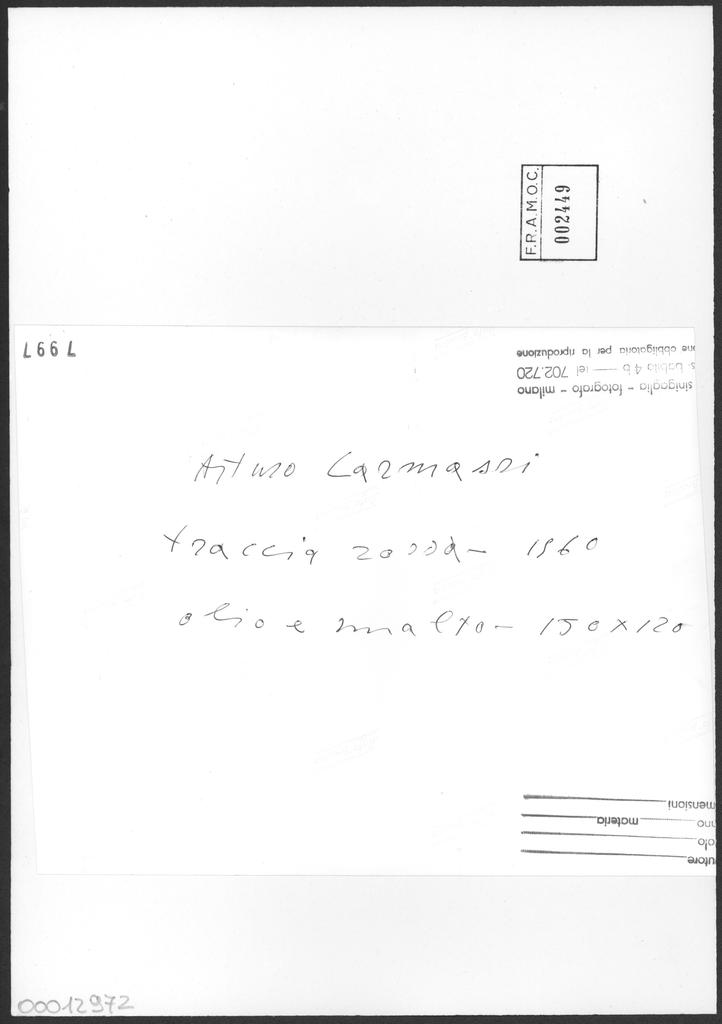 F.R.A.M.O.C.
002449
7997
sinigaglia - fotografo - milano
s. babila 4 b — tel 702.720
one obbligatoria per la riproduzione
Arturo Carmassi
traccia rossa - 1960
olio e smalto - 150 x 120
utore
olo
nno materia
mensioni
00012972